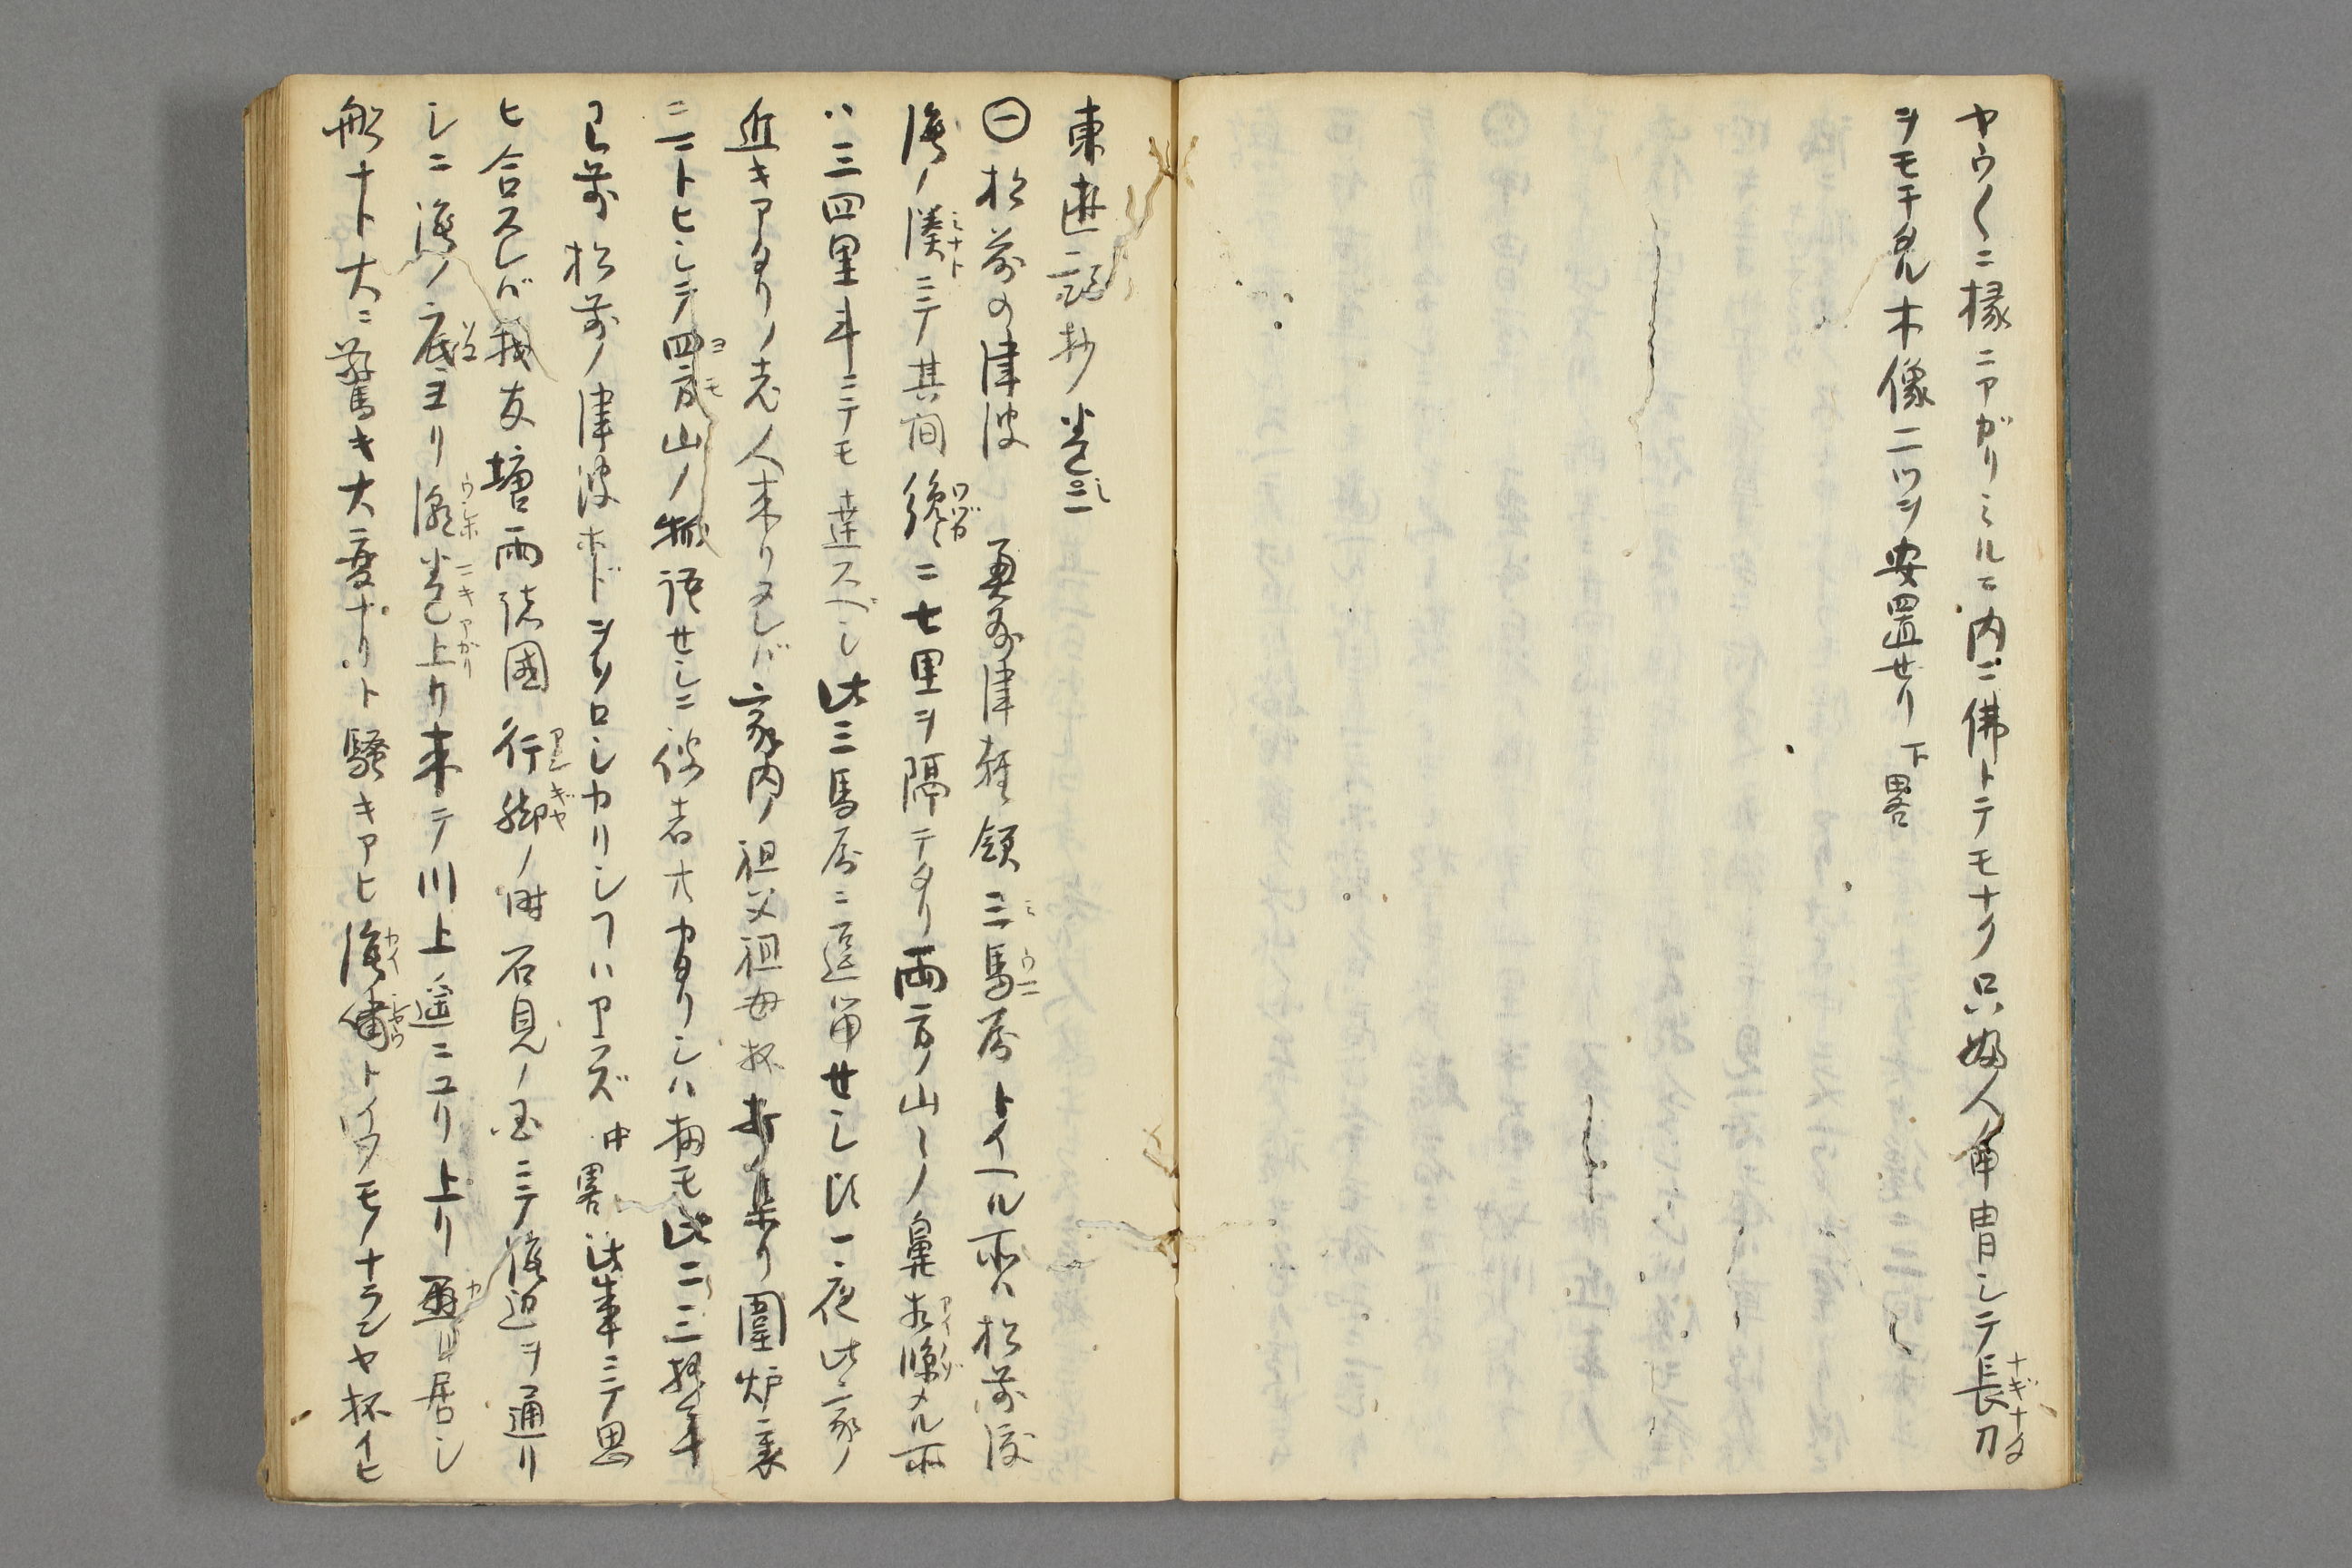 ヤウ〱ニ椽ニアガリミルニ内ニ佛トテモナク只婦人甲冑シテ長刀
ヲモチタル木像二ツヲ安置せリ 下畧
東遊記抄 巻之二
㊀松前の津波 奥州津軽領三馬屋トイヘル所ハ松前渡
海ノ湊ニテ其間纔ニ七里ヲ隔テタリ両方ノ山〻ノ鼻指臨メル所
ハ三四里斗ニテモ達スベし此三馬屋ニ逗留せし頃一夜此家ノ
近キアタリノ老人来リヌレバ家内ノ祖父祖母抔打集リ囲炉裏
ニマトヒシテ四方山ノ物語せシニ彼者共カタリシハ扨モ此二三拾年
已前松前ノ津波ホドヲソロシカリシフハアラズ 中畧 此事ニテ思
ヒ合スレバ我友塘雨諸國行脚ノ時石見ノ国ニテ後边ヲ通リ
シニ海ノ底ヨリ潮巻上リ来テ川上遥ニコリ上リ 居シ
船ナト大ニ驚キ大変ナリト騒キアヒ海嘯トイフモノナランヤ抔イヒ